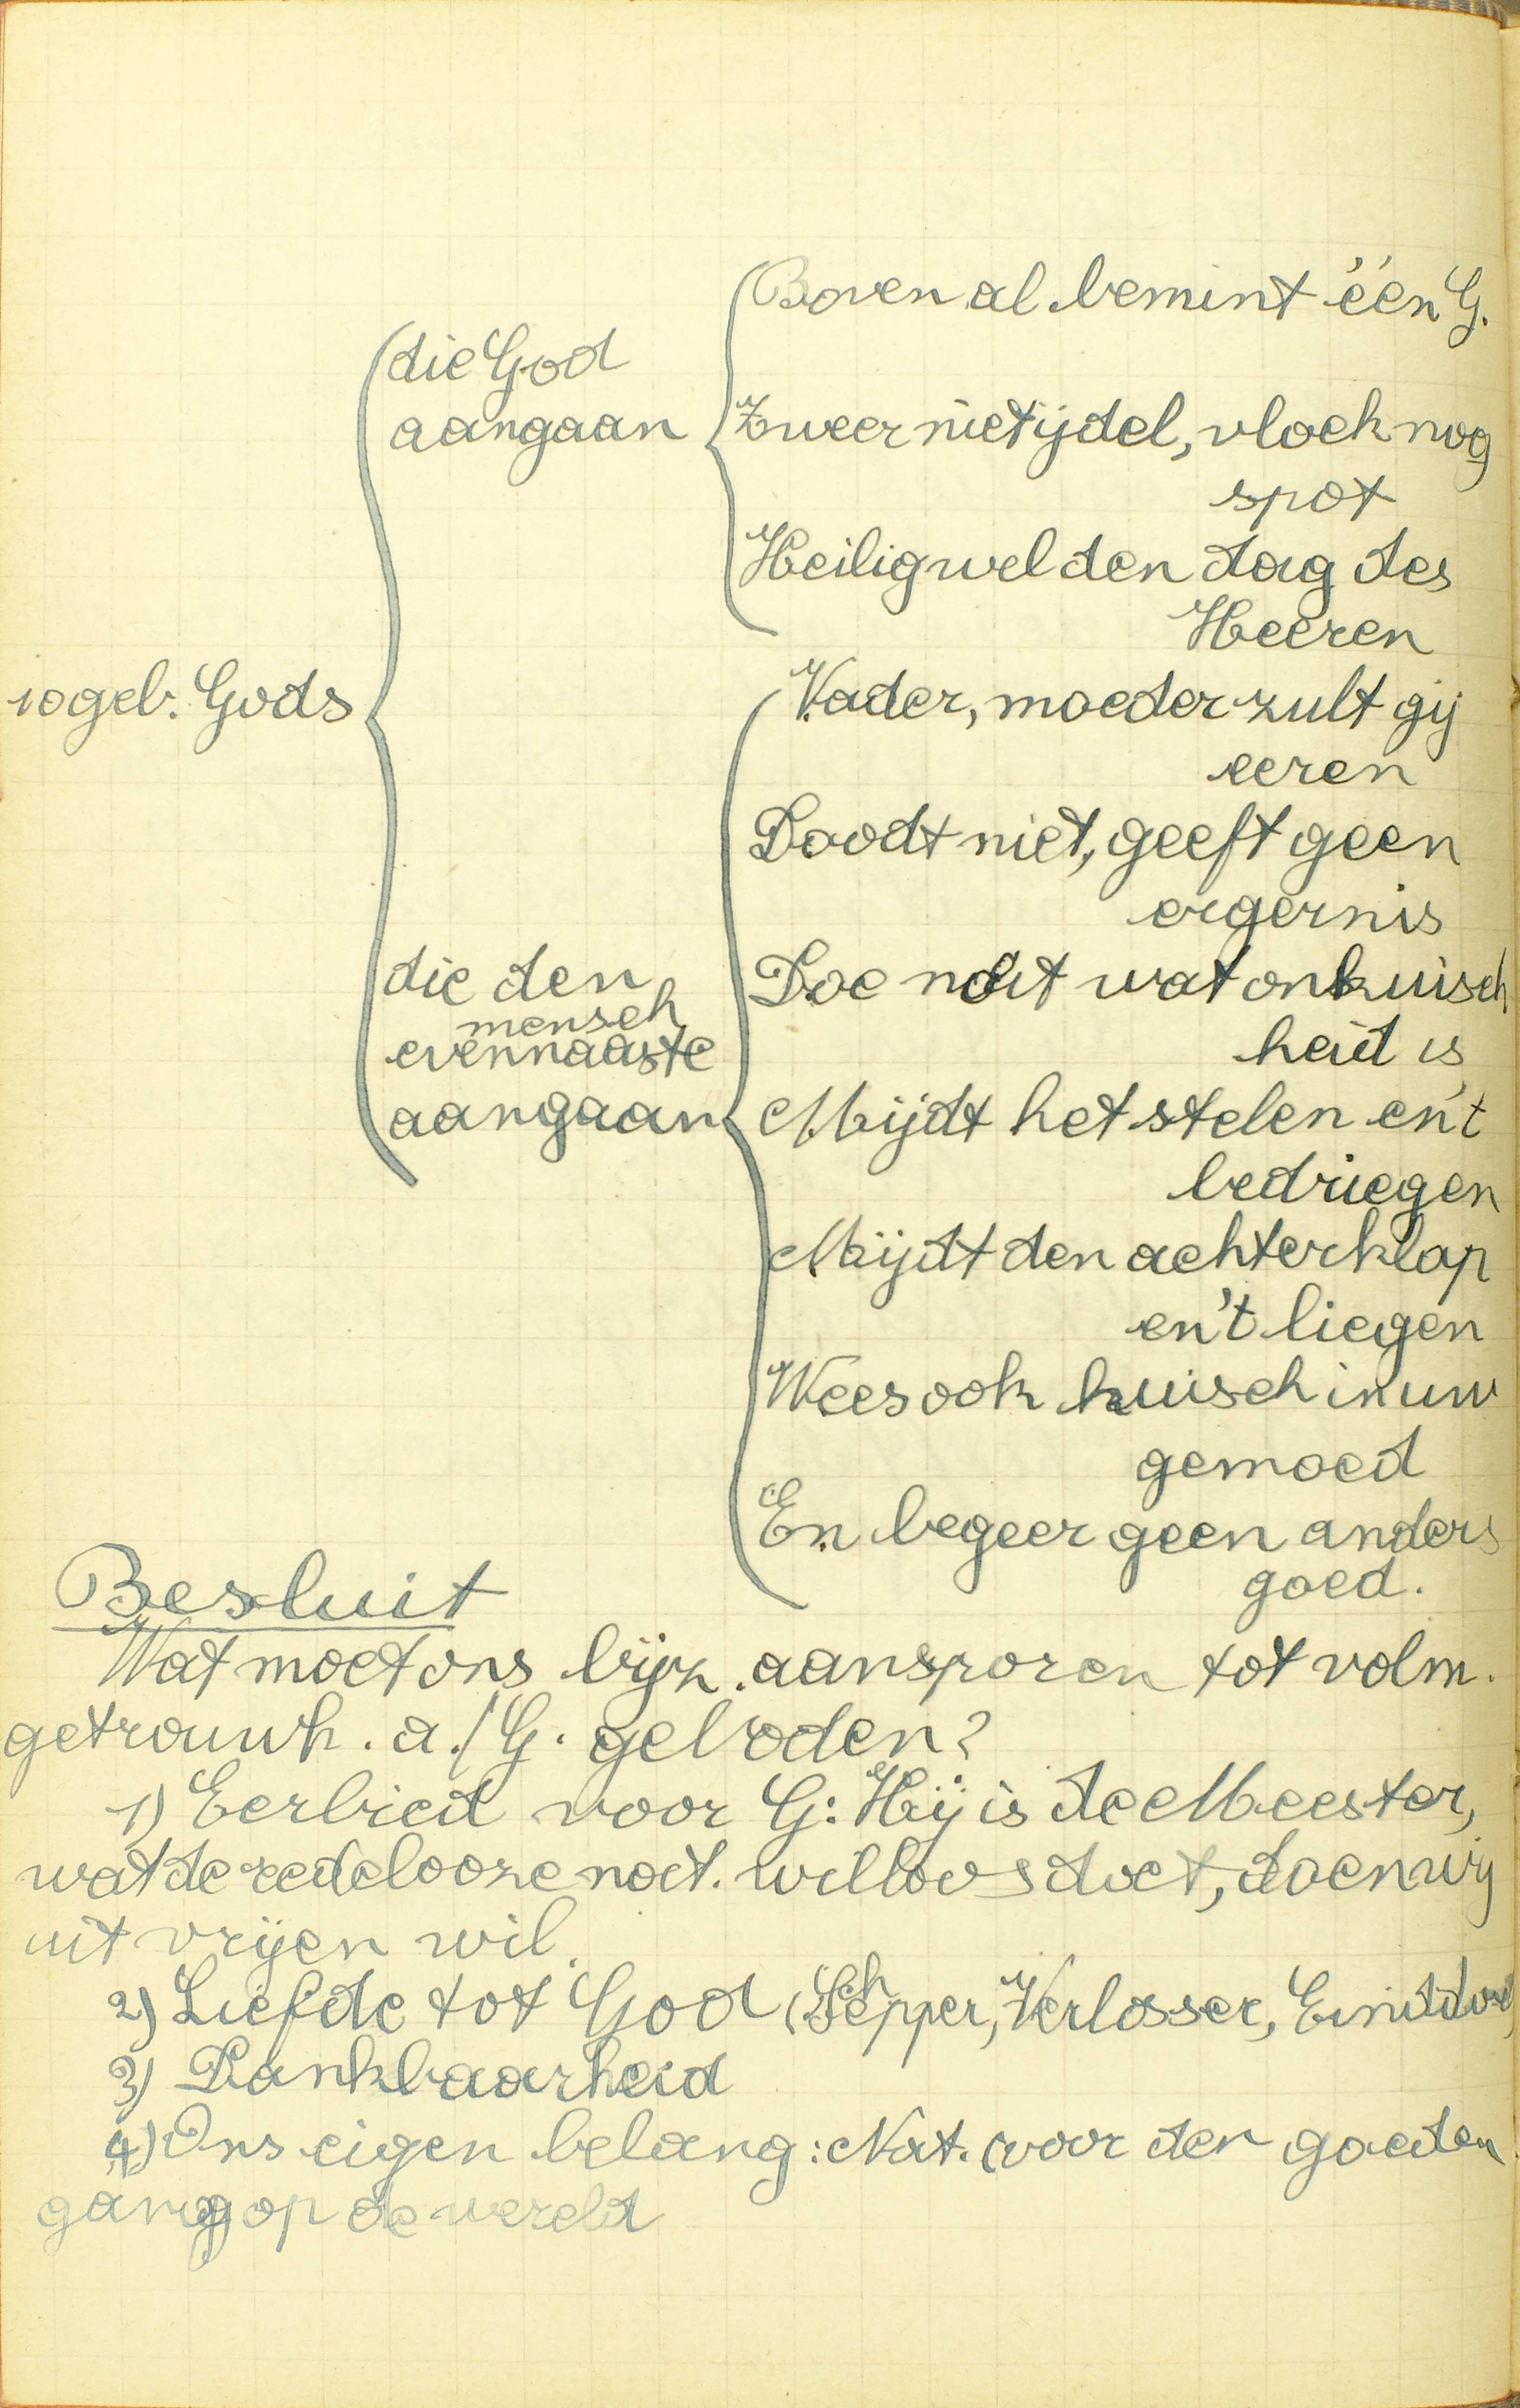 10 geb. Gods
die God
aangaan
Boven al bemint één G.
Zweer niet ijdel, vloek nog
spot
Heilig wel den dag des
Heeren
die den
mensch
evennaaste
aangaan
Vader, moeder zult gij
eeren
Doodt niet, geeft geen
ergernis
Doe nóit wat onkuisch
heid is
Mijdt het stelen en 't
bedriegen
Mijdt den achterklap
en 't liegen
Wees ook kuisch in uw
gemoed
En begeer geen anders
goed.
Besluit
Wat moet ons bijz. aansporen tot volm.
getrouwh. a./G. geboden?
1) Eerbied voor G: Hij is de Meester,
wat de redelooze nat. willoos doet, doen wij
uit vrijen wil.
2) Liefde tot God (Schepper, Verlosser, Einddoel)
3) Dankbaarheid
4) Ons eigen belang: Nat. (voor den goeden
gang op de wereld